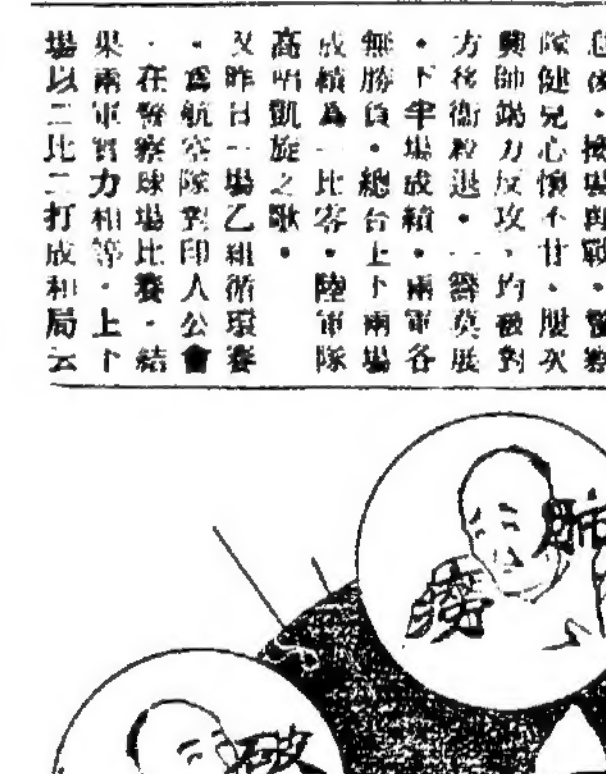 後。場再戰。警察
隊健兒心懷不甘。屢次
興師竭力反攻。均被對
方後衛殺退。一籌莫展
。下半場成績。兩軍各
無勝負。總台上下兩場
成績爲一比零。陸軍隊
高唱凱旋之歌。
又昨日一場乙組循環賽
。爲航空隊對印人公會
。在警察球場比賽。結
果兩軍實力相等。上下
場以二比二打成和局云
肺
癆
破